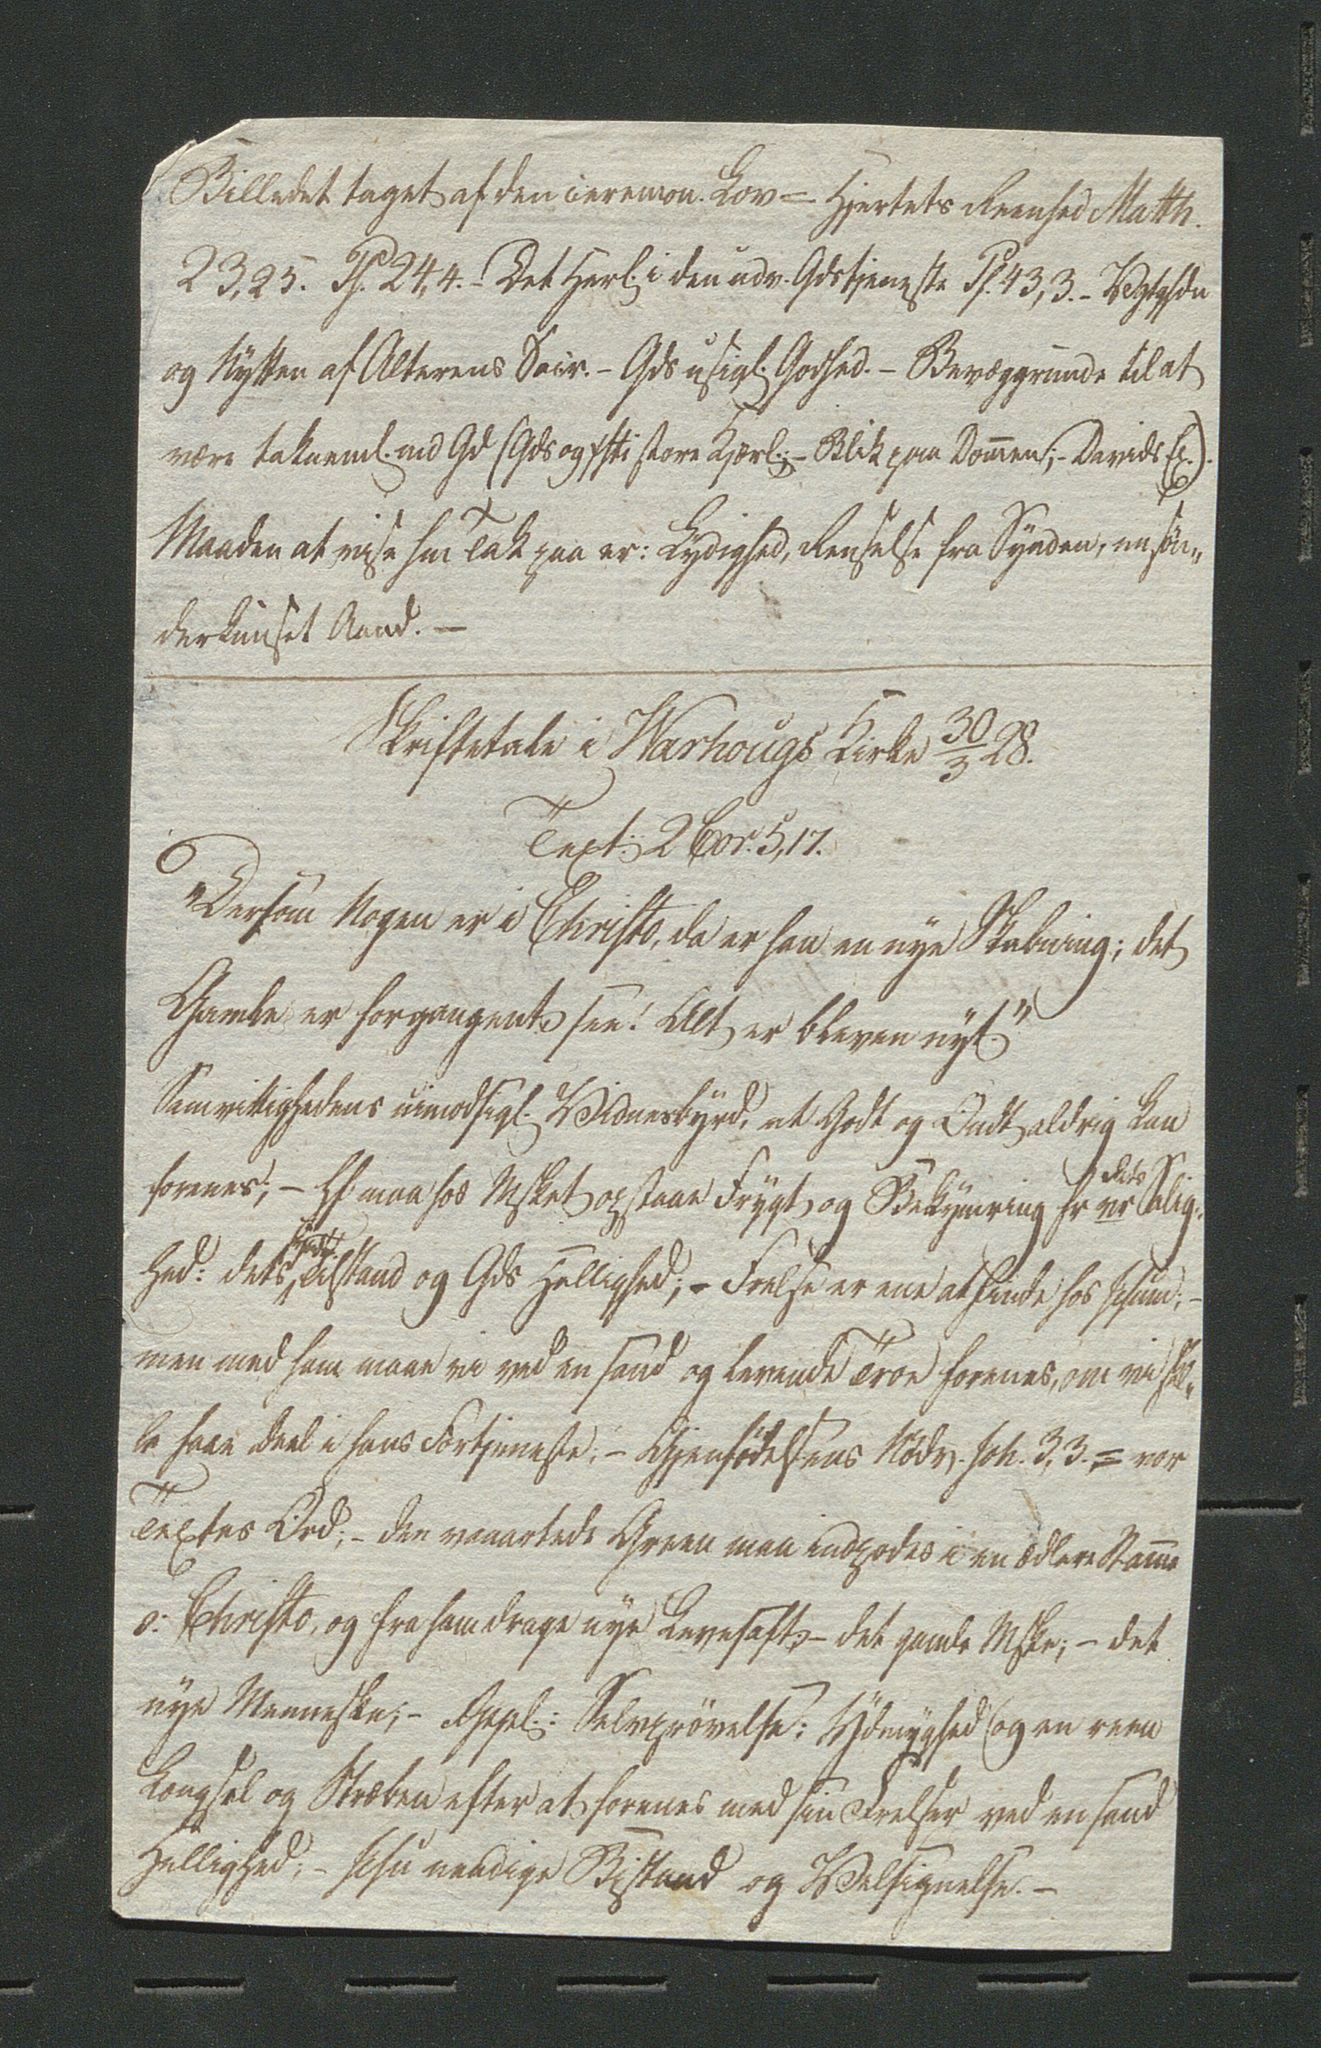 Billedet taget af den ceremon. Lov = Hjertets Reenhed Matth.
23,25. Ps. 24,4. - Det Herl. i den udv. Gdstjeneste Ps. 43,3. - Vigtighdn
og Nytten af Alterens Sacr. - Gds usigl. Godhed. - Bevæggrunde til at
være takneml. md Gd (Gds og Xsti store Kjerl.; - Blik paa Dommen; - Davids Ex.).
Maaden at vise ham Tak paa er: Lydighed, Renselse fra Synden, en sön„
derknuset Aand. -
Skriftetale i Warhougs Kirke 30/3 28.
Text: 2 Cor. 5,17.
"Dersom Nogen er i Christo, da er han en nye Skabning; det
Gamle er forgangent, see! Alt er bleven nyt."
Samvittighedens uimodsigl. Vidnesbyrd, at Godt og Ondt aldrig kan
forenes; - Hf. maa hos Msket opstaae Frygt og Bekymring fr vr dets Salig:
hed: dets syndf. Tilstand og Gds Hellighed; - Frelse er ene at finde hos Jesum; -
men med ham maae vi ved en sand og levende Troe forenes, om vi skul„
le have Deel i hans Fortjeneste; - Gjenfödelsens Nödv. Joh. 3,3. = vor
Textes Ord; - den vanartede Green maa indpodes i en ædlere Stamme
o: Christo, og fra ham drage nye Levesaft; - det gamle Mske; - det
nye Menneske; - Appl.: Selvprövelse: Ydmyghed (og en reen
Længsel og Stræben efter at forenes med sin Frelser ved en sand
Hellighed; - Jesu naadige Bistand og Velsignelse. -